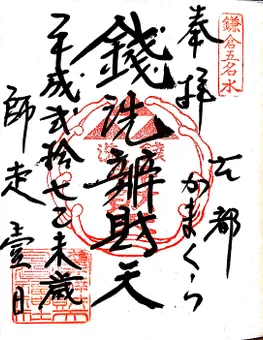 鎌倉五名水
奉拝
古都
かまくら
銭洗辨財天
平成弐拾七乙未歳
師走壹日